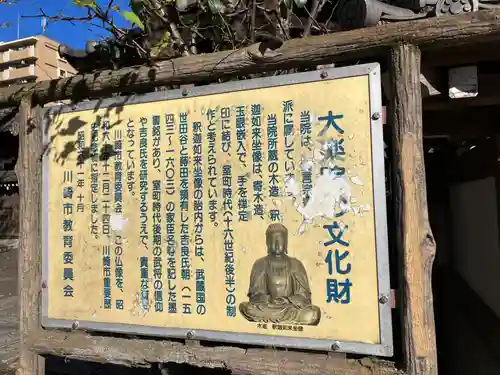 大楽院の文化財
当院は、
派に属してい
当院所蔵の木造 釈
迦如来坐像は、寄木造、
玉眼嵌入で、手を禅定
印に結び、室町時代(十六世紀後半)の制
作と考えられています。
釈迦如来坐像の胎内からは、武蔵国の
世田谷と蒔田を領有した吉良氏朝(一五
四三~一六〇三)の家臣名などを記した墨
書銘があり、室町時代後期の武将の信仰
や吉良氏を研究するうえで、貴重な
となっています。
川崎市教育委員会 この仏像を、昭
和 六 年十二月二十四日、川崎市重要歴
史記念物に指定しました。
昭和 年十月
川崎市教育委員会
木造 釈迦如来坐像